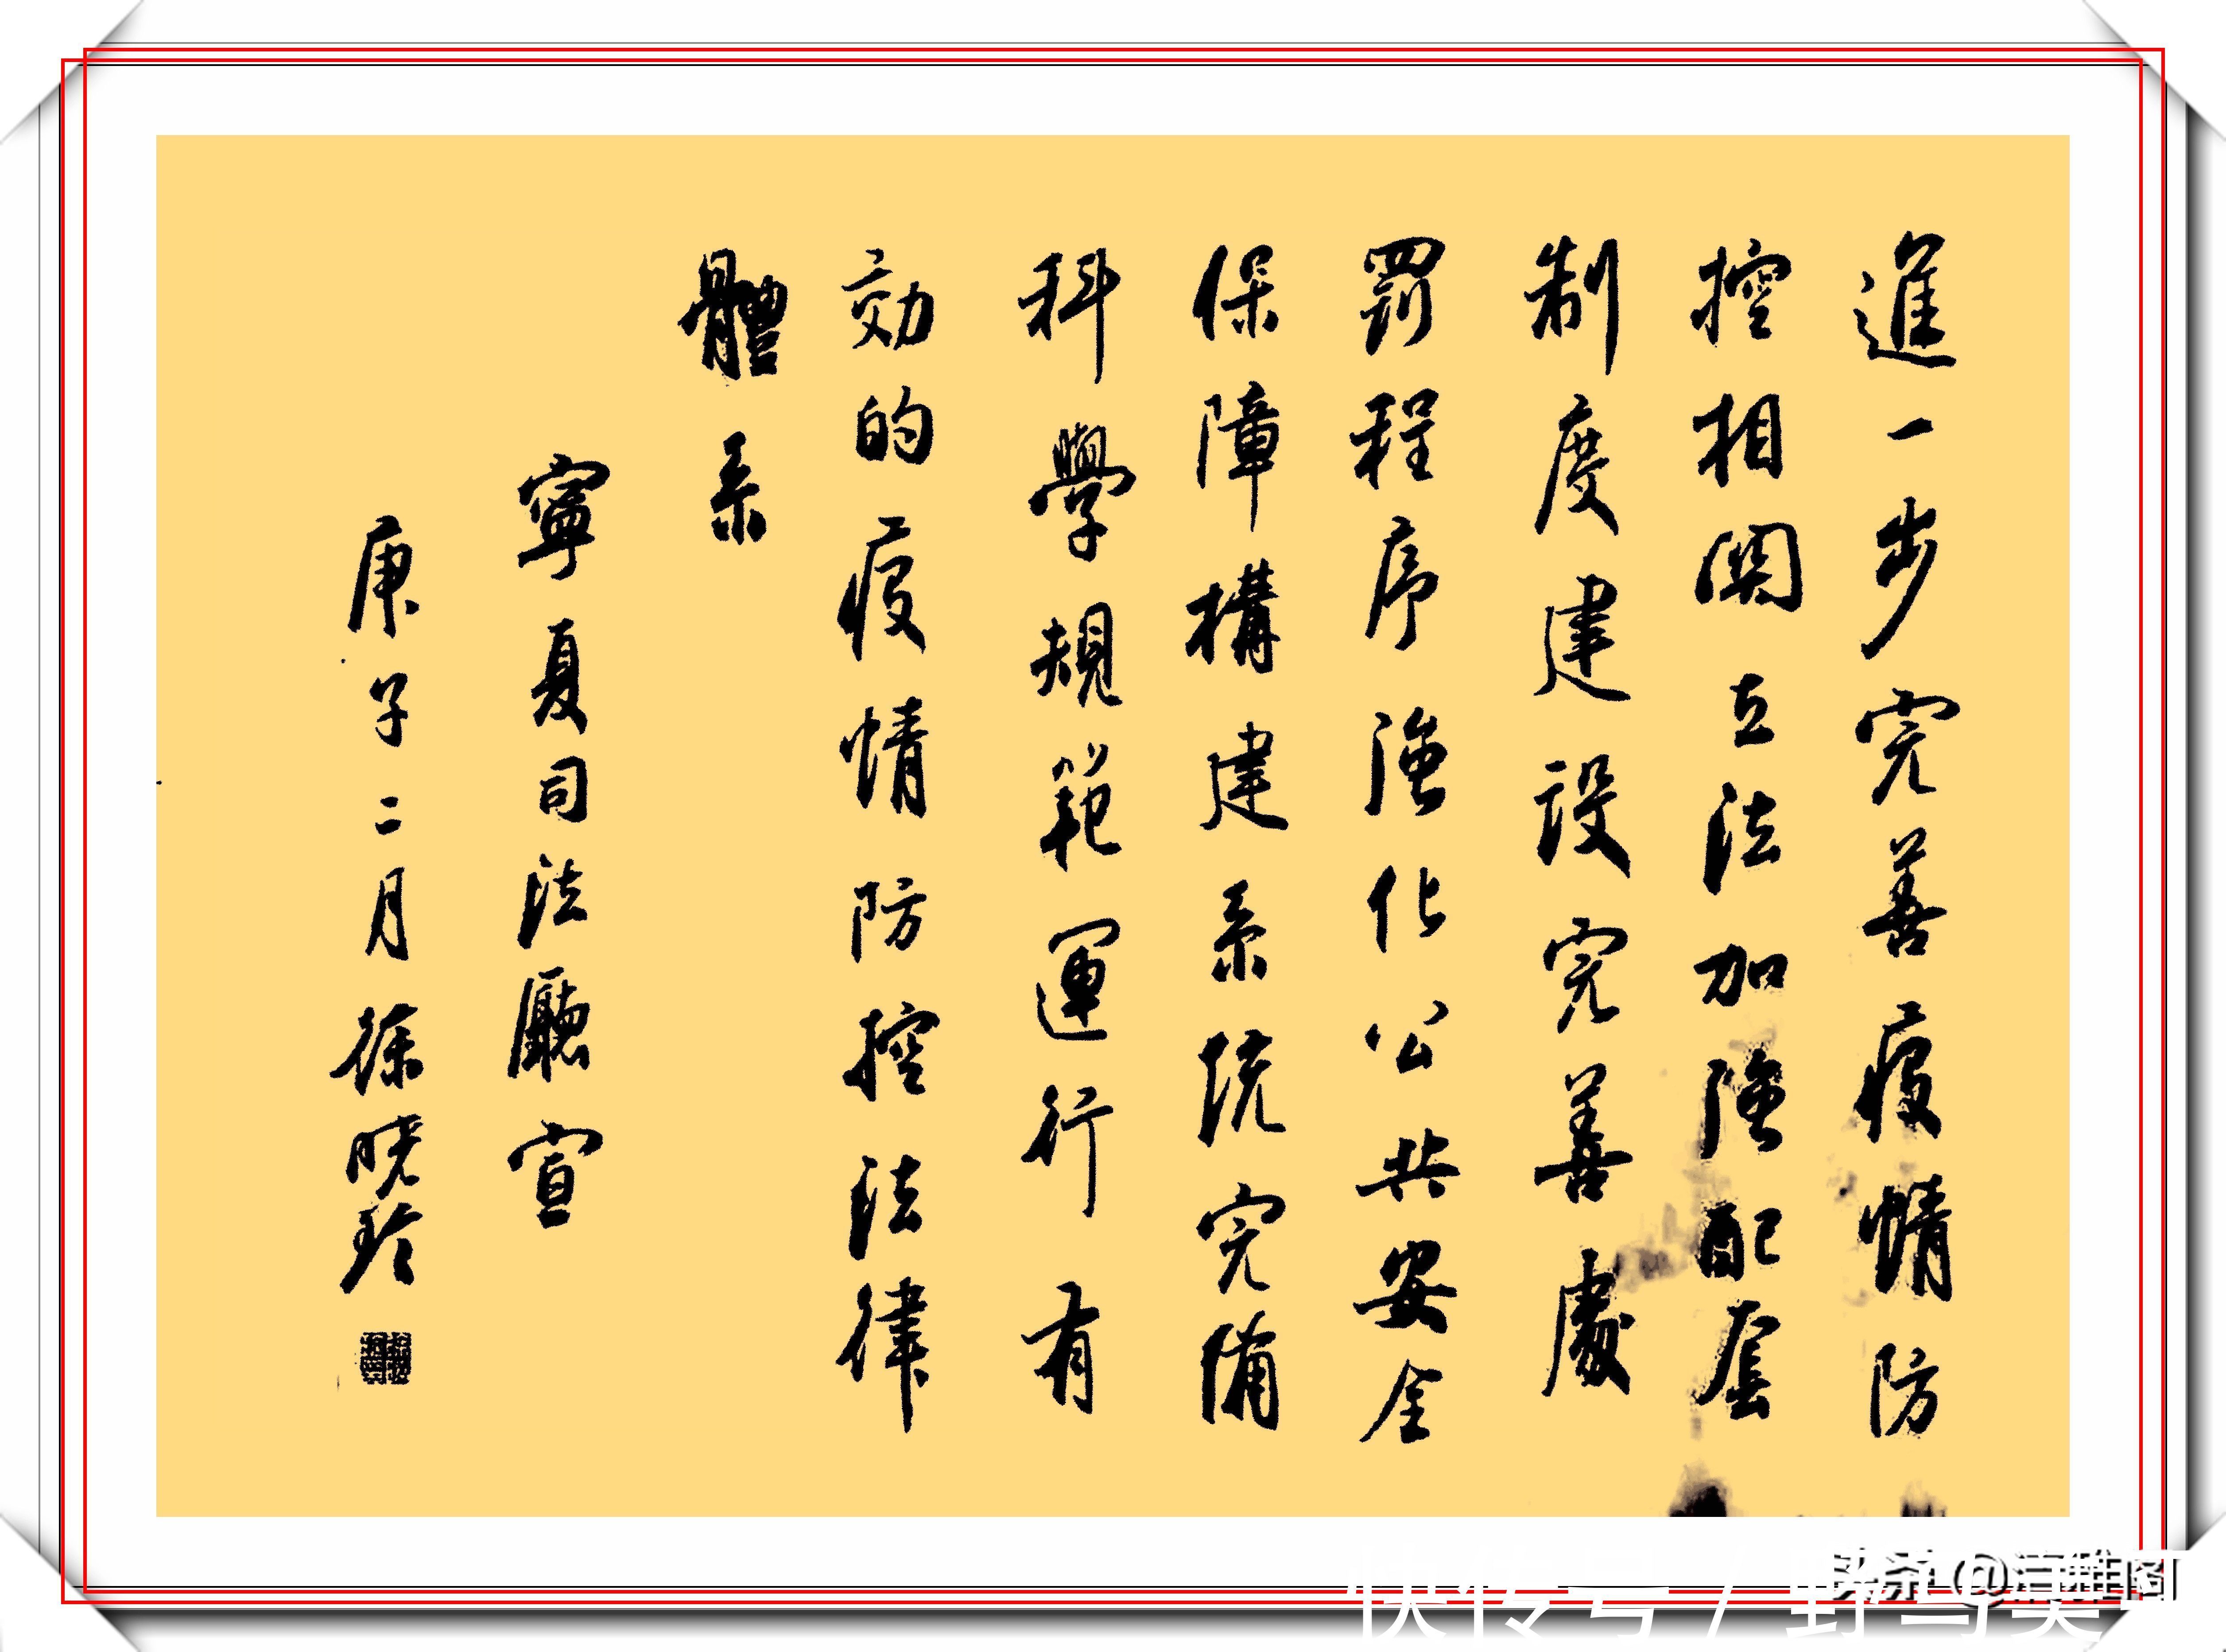 進一步完善疫情防
控相関立法加強配套
制度建設完善處
罰程序強化公共安全
保障構建系統完備
科學規範運行有
効的疫情防控法律
體系
寧夏司法廳宣
庚子二月徐曉玲
头条 @清雅阁